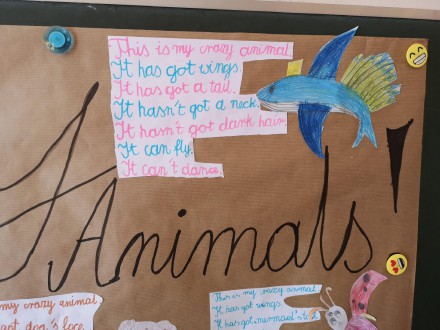 This is my crazy animal
It has got wings.
It has got a tail.
It hasn't got a neck.
It hasn't got dark hair.
It can fly.
It can't dance.
Animals!
my crazy animal
got dog's face.
This is my crazy animal
It has got wings.
It has got mermaid's